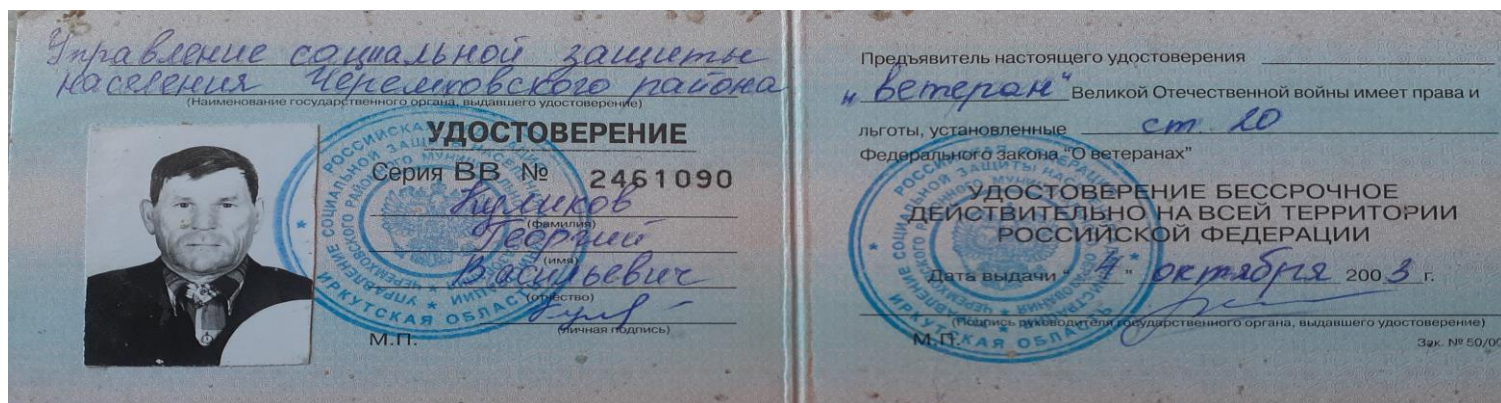 Управление социальной защиты
населения Черемховского района
(Наименование государственного органа, выдавшего удостоверение)
УДОСТОВЕРЕНИЕ
Серия ВВ № 2461090
Куликов
(фамилия)
Георгий
(имя)
Васильевич
(отчество)
(личная подпись)
М.П.
Предъявитель настоящего удостоверения
"ветеран" Великой Отечественной войны имеет права и
льготы, установленные ст. 20
Федерального закона "О ветеранах"
УДОСТОВЕРЕНИЕ БЕССРОЧНОЕ
ДЕЙСТВИТЕЛЬНО НА ВСЕЙ ТЕРРИТОРИИ
РОССИЙСКОЙ ФЕДЕРАЦИИ
Дата выдачи "4" октября 2003 г.
(Подпись руководителя государственного органа, выдавшего удостоверение)
М.П.
Зак. № 50/00